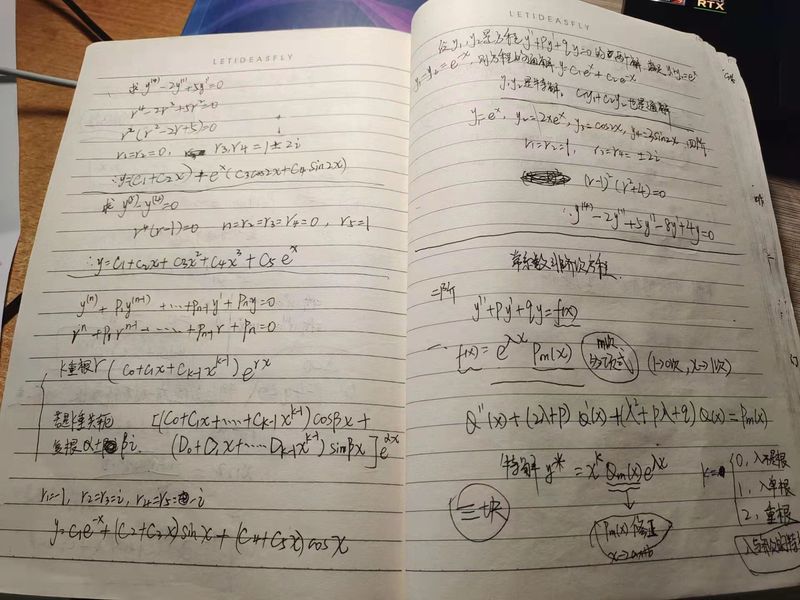 LETIDEASFLY
求 y⁽⁴⁾-2y'''+5y''=0
r⁴-2r³+5r²=0
r²(r²-2r+5)=0
r₁=r₂=0, r₃,r₄=1±2i
∴y=(C₁+C₂x)+eˣ(C₃cos2x+C₄sin2x)
求 y⁽⁵⁾-y⁽⁴⁾=0
r⁴(r-1)=0 r₁=r₂=r₃=r₄=0, r₅=1
∴y=C₁+C₂x+C₃x²+C₄x³+C₅eˣ
y⁽ⁿ⁾+P₁y⁽ⁿ⁻¹⁾+…+Pₙ₋₁y'+Pₙy=0
rⁿ+P₁rⁿ⁻¹+……+Pₙ₋₁r+Pₙ=0
k重根r (C₀+C₁x+Cₖ₋₁xᵏ⁻¹)eʳˣ
若是k重共轭 [(C₀+C₁x+……+Cₖ₋₁xᵏ⁻¹)cosβx+
复根α±βi. (D₀+D₁x+……Dₖ₋₁xᵏ⁻¹)sinβx]e^αx
r₁=-1, r₂=r₃=i, r₄=r₅=-i
y=C₁e⁻ˣ+(C₂+C₃x)sinx+(C₄+C₅x)cosx
LETIDEASFLY
y₁,y₂是方程y''+Py'+qy=0的两个解
y₁-y₂=e⁻ˣ, 则方程的通解 y=C₁eˣ+C₂e⁻ˣ
y₁y₂是特解, C₁y₁+C₂y₂也是通解
y₁=eˣ, y₂=2xeˣ, y₃=cos2x, y₄=3sin2x
r₁=r₂=1, r₃=r₄=±2i
(r-1)²(r²+4)=0
∴y⁽⁴⁾-2y'''+5y''-8y'+4y=0
常系数非齐次方程
二阶
y''+py'+qy=f(x)
一. f(x)=e^λx Pm(x) m次多项式 (1→0次, x→1次)
Q''(x)+(2λ+p)Q'(x)+(λ²+pλ+q)Q(x)=Pm(x)
特解 y*=xᵏQm(x)e^λx k= 0, λ不是根
1, λ单根
2, 重根
三块
Pm(x)修正
x→ax+b